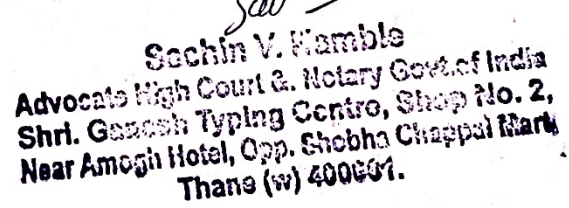 Sachin V. Kamble
Advocate High Court & Notary Govt.of India
Shri. Ganesh Typing Centre, Shop No. 2,
Near Amogh Hotel, Opp. Shobha Chappal Mart,
Thane (w) 400601.